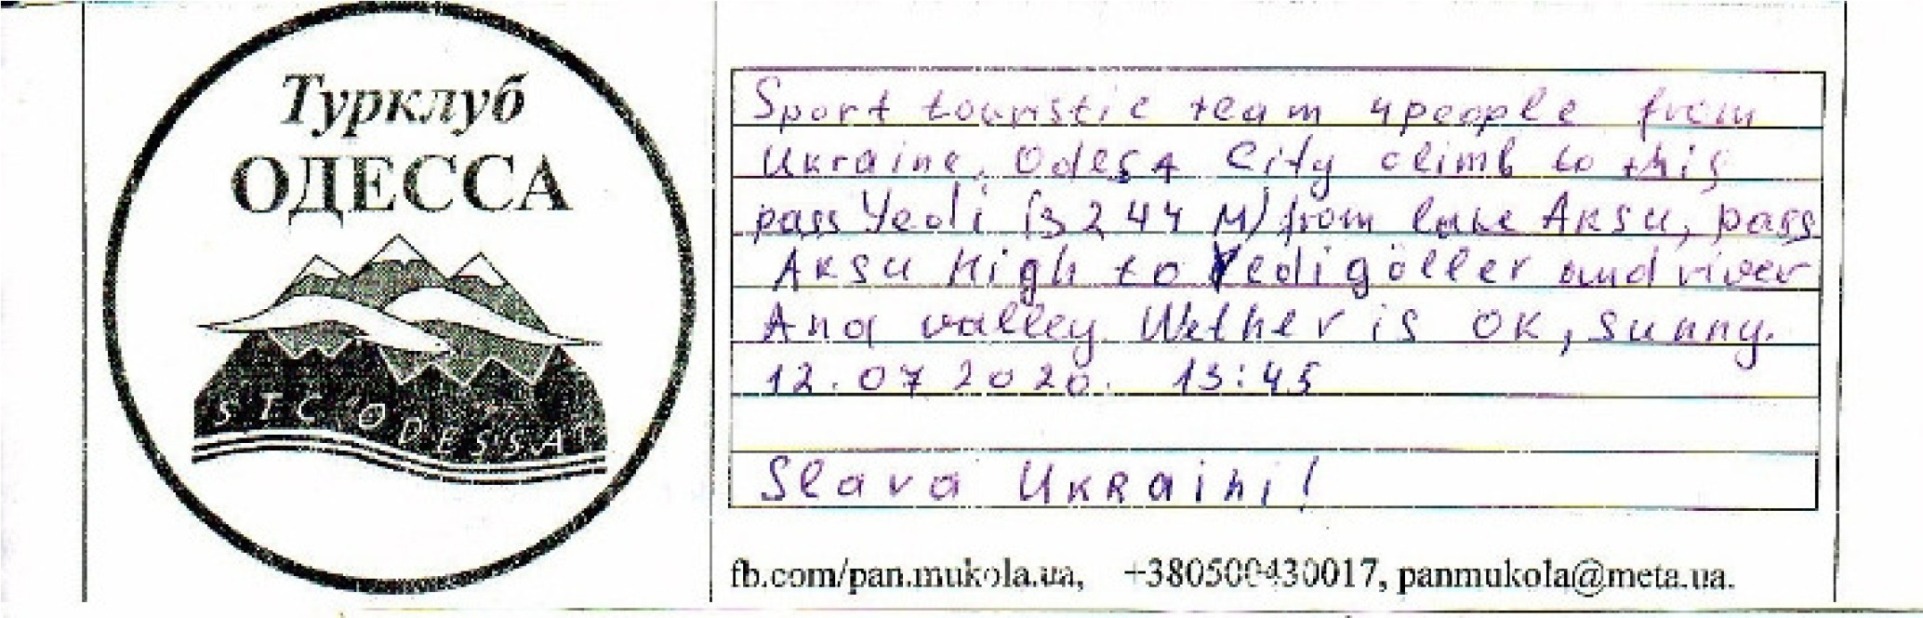 Турклуб
ОДЕССА
STC ODESSA
Sport touristic team 4people from
Ukraine, Odesa City climb to this
pass Yedi (3244 M) from lake Aksu, pass
Aksu High to Yedigöller and river
Ana valley. Wether is OK, sunny.
12.07 2020. 13:45
Slava UKRaini!
fb.com/pan.mukola.ua, +380500430017, panmukola@meta.ua.